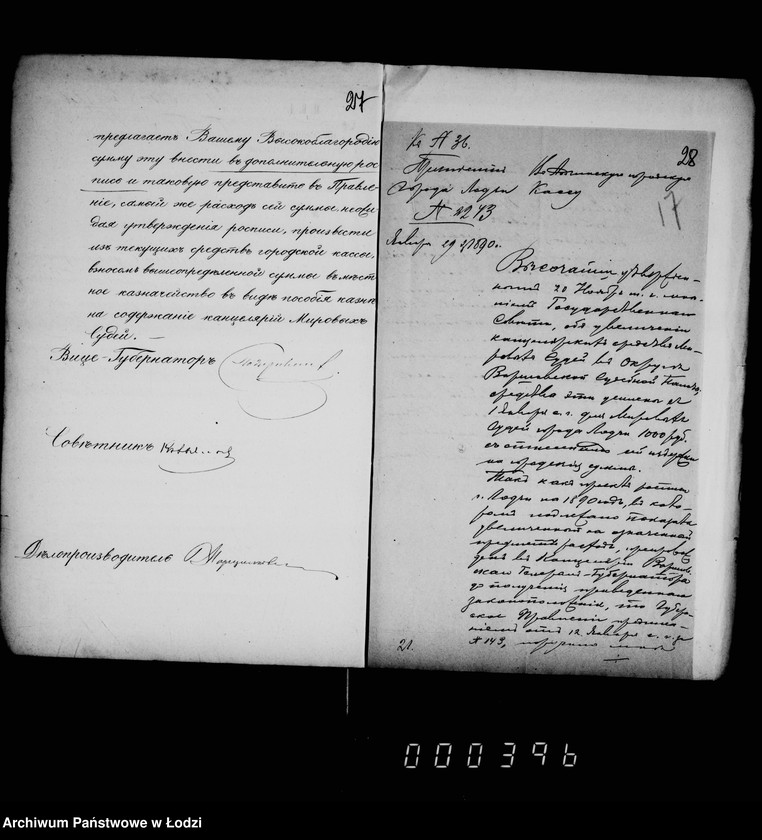 27
предлагаетъ Вашему Высокоблагородію
сумму эту внести въ дополнительную рос-
пись и таковую представить въ Правле-
ніе, самый же расходъ сей суммы, не ожи-
дая утвержденія росписи, произвести
изъ текущихъ средствъ городской кассы,
взносомъ вышеопредѣленной суммы въ мѣст-
ное казначейство въ видѣ пособія казнѣ
на содержаніе канцелярій Мировыхъ
Судей. —
Вице-Губернаторъ
Совѣтникъ
Дѣлопроизводитель
28
17
Къ № 36.
Президентъ
Города Лодзи
Кассу
№ 2243
Января 29 1890 г.
Высочайше утвержден-
нымъ 20 Ноября м. г. мнѣ-
ніемъ Государственнаго
Совѣта, объ увеличеніи
канцелярскихъ средствъ Ми-
ровыхъ Судей въ Округѣ
Варшавской Судебной Палаты,
средства эти усилены съ
1 Января с. г. для Мировыхъ
Судей города Лодзи 1000 руб.
съ отнесеніемъ сей издержки
на городскія суммы.
Такъ какъ проектъ росписи
г. Лодзи на 1890 годъ, въ кото-
ромъ подлежало показать
увеличенный на означенный
предметъ расходъ,
въ Канцелярію Варшав-
скаго Генералъ-Губернатора
до полученія приведеннаго
законоположенія, то Губерн-
ское Правленіе предписа-
ніемъ отъ 12 Января с. г. за
№ 143, поручило
21.
000396
Archiwum Państwowe w Łodzi